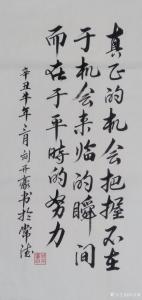 真正的机会把握不在
于机会来临的瞬间
而在于平時的努力
辛丑牛年二月剑开豪书於常德